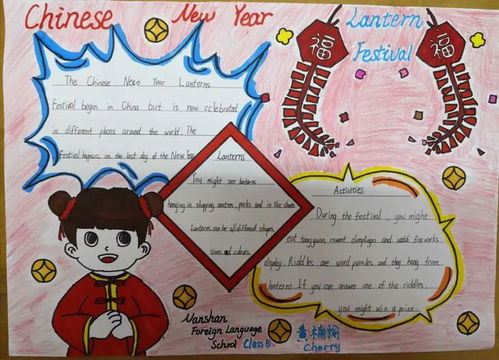 Chinese New Year
Lantern
Festival
福
福
The Chinese New Year Lanterns
Festival began in China but is now celebrated
in different places around the world. The
Festival happens on the last day of the New Year
Lanterns
You might see lanterns
hanging in shopping centres, parks and in the streets
Lanterns can be all different shapes,
sizes and colours.
Activities
During the festival, you might
eat tangyuan, sweet dumplings and watch fireworks
display. Riddles are word puzzles and they hang from
lanterns. If you can answer one of the riddles,
you might win a prize.
Nanshan
Foreign Language
School Class 5
黄
Cherry